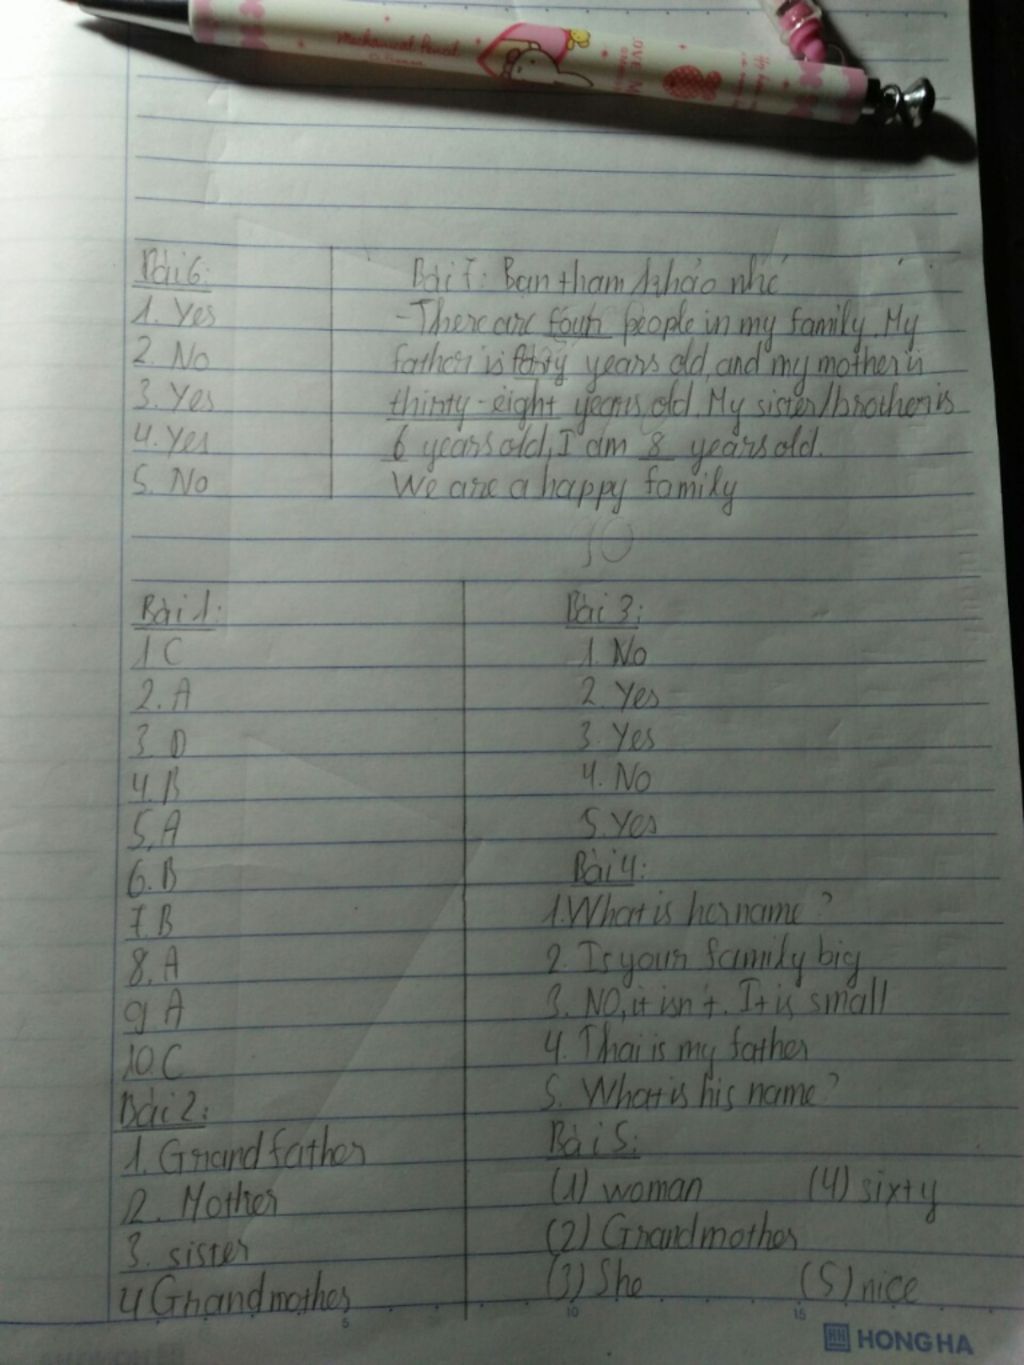 Mechanical Pencil
Bài 6:
1. Yes
2. No
3. Yes
4. Yes
5. No
Bài 7: Bạn tham khảo nhé
-There are four people in my family. My
father is forty years old, and my mother is
thirty-eight years old. My sister/brother is
6 years old, I am 8 years old.
We are a happy family
Bài 1:
1 C
2. A
3. D
4. B
5. A
6. B
7. B
8. A
9 A
10. C
Bài 2:
1. Grandfather
2. Mother
3. sister
4 Grandmother
Bài 3:
1. No
2. Yes
3. Yes
4. No
5. Yes
Bài 4:
1. What is her name?
2. Is your family big
3. NO, it isn't. It is small
4. Thai is my father
5. What is his name?
Bài 5:
(1) woman (4) sixty
(2) Grandmother
(3) She (5) nice
5 10 15
HONG HA